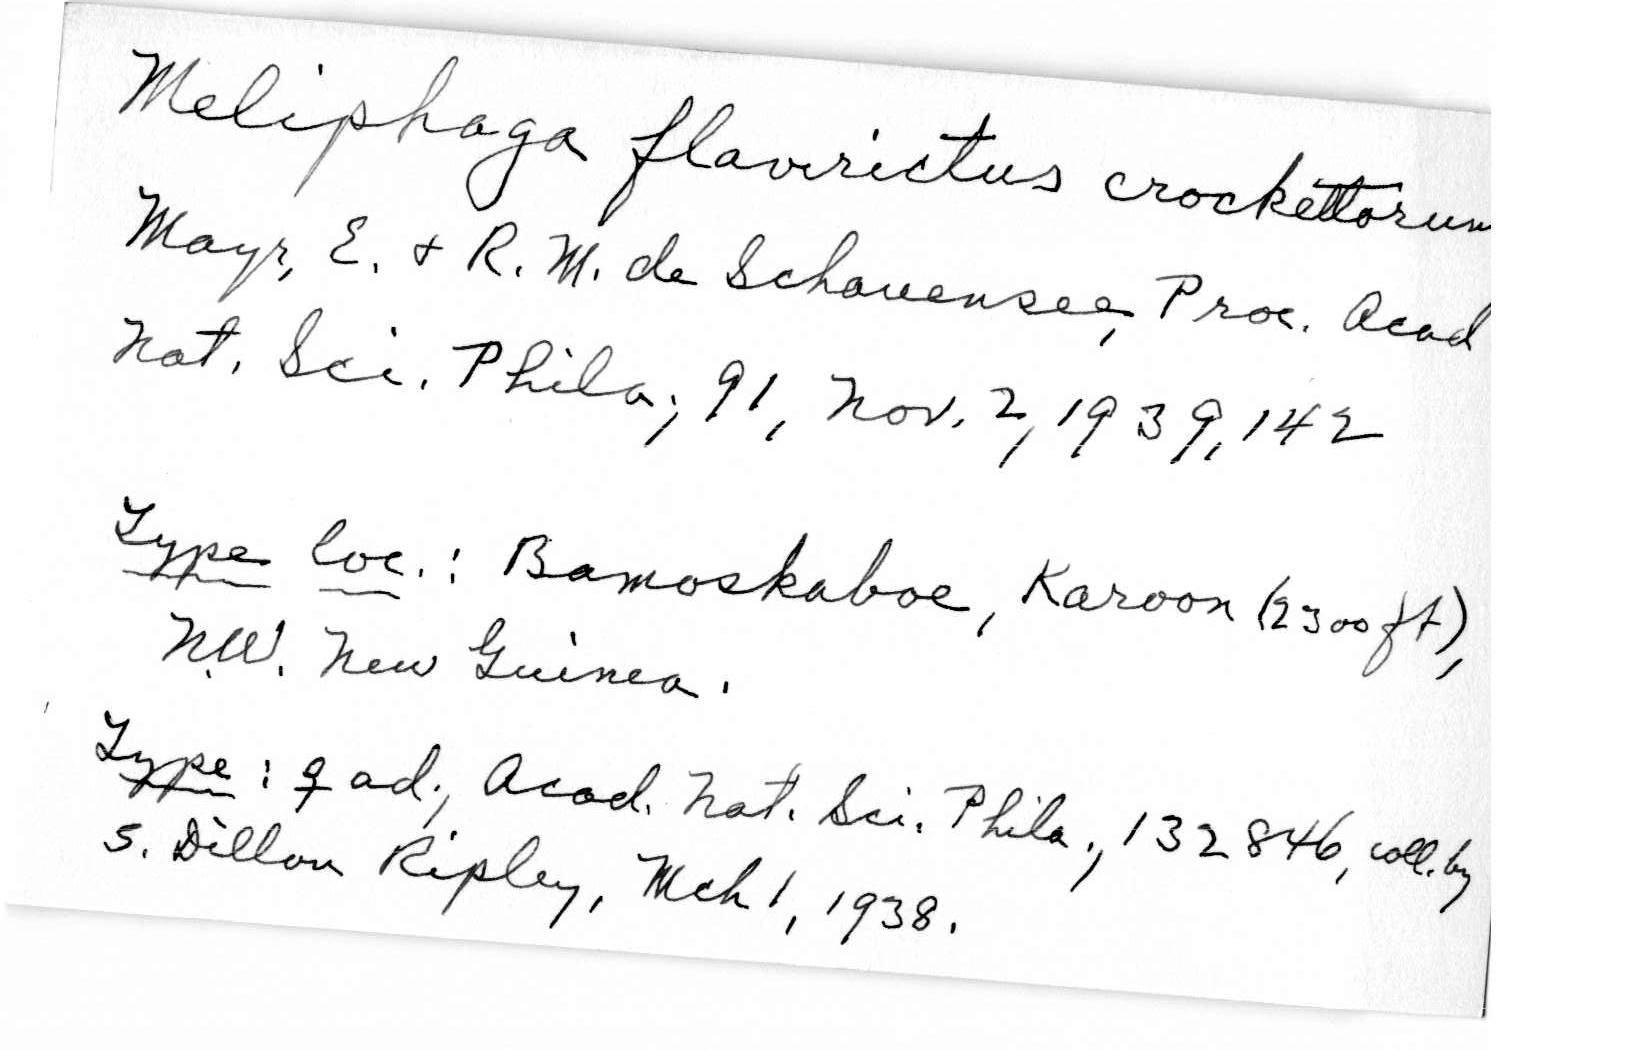 Meliphaga flavirictus crockettorum
Mayr, E. + R. M. de Schauensee, Proc. Acad
Nat. Sci. Phila., 91, Nov. 2, 1939, 142
Type loc.: Bamoskaboe, Karoon (2300 ft),
N.W. New Guinea.
Type: ♀ ad., Acad. Nat. Sci. Phila., 132846, coll. by
S. Dillon Ripley, Mch 1, 1938.